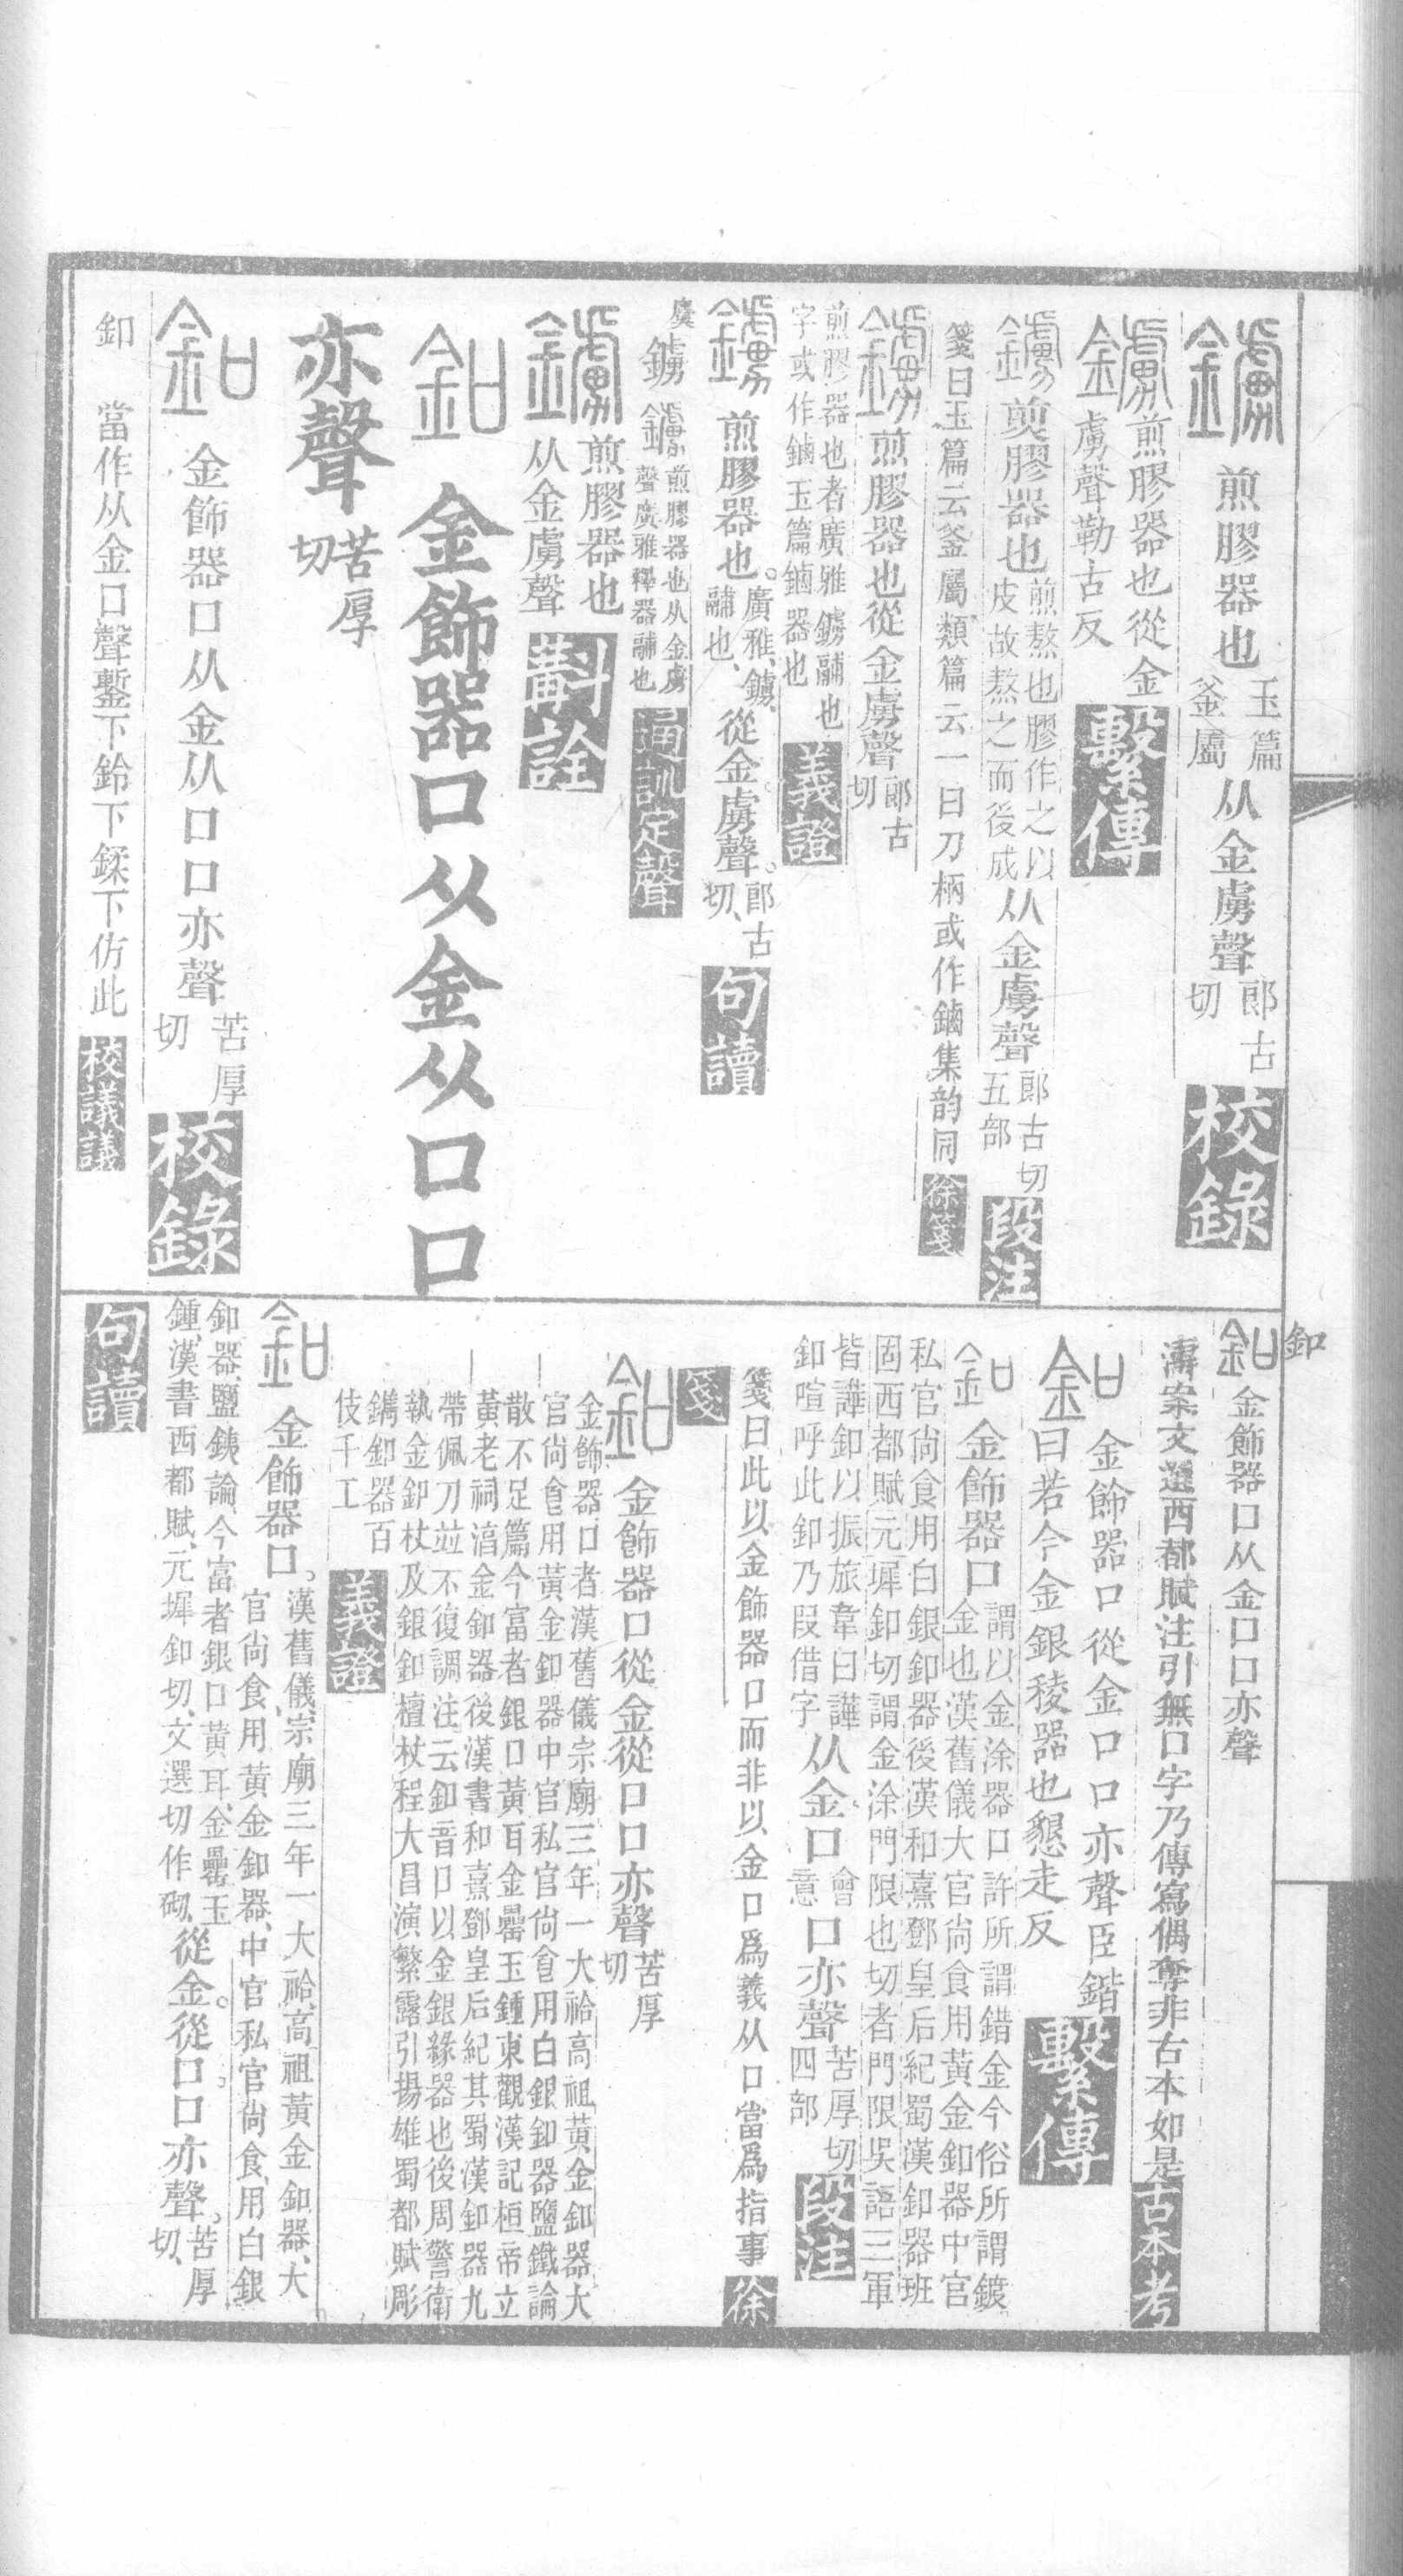 鐪 煎膠器也玉篇釜屬从金虜聲郎古切 校錄
鐪 煎膠器也從金虜聲勒古反 繫傳
鐪 煎膠器也煎熬也膠作之以皮故熬之而後成从金虜聲郎古切五部 段注
箋曰玉篇云釜屬類篇云一曰刀柄或作鏀集韵同 徐箋
鐪 煎膠器也從金虜聲郎古切
煎膠器也者廣雅鐪䥯也字或作鏀玉篇鏀器也 義證
鐪 煎膠器也。廣雅、鐪、䥯也、從金。虜聲。郎古切、 句讀
鐪 煎膠器也从金虜聲廣雅釋器䥯也 通訓定聲
鐪 煎膠器也从金虜聲 斠詮
釦 金飾器口从金从口口
亦聲苦厚切
釦 金飾器口从金从口口亦聲苦厚切 校錄
釦 當作从金口聲鏨下鈴下鍒下仿此 校議議
釦
釦 金飾器口从金口口亦聲
濤案文選西都賦注引無口字乃傳寫偶奪非古本如是 古本考
釦 金飾器口從金口口亦聲臣鍇曰若今金銀稜器也懇走反 繫傳
釦 金飾器口謂以金涂器口許所謂錯金今俗所謂鍍金也漢舊儀大官尙食用黃金釦器中官
私官尙食用白銀釦器後漢和熹鄧皇后紀蜀漢釦器班
固西都賦元墀釦切謂金涂門限也切者門限吳語三軍
皆譁釦以振旅韋曰譁釦喧呼此釦乃叚借字从金口會意口亦聲苦厚切四部 段注
箋曰此以金飾器口而非以金口爲義从口當爲指事 徐
箋
釦 金飾器口從金從口口亦聲苦厚切
金飾器口者漢舊儀宗廟三年一大祫高祖黃金釦器大
官尙食用黃金釦器中官私官尙食用白銀釦器鹽鐵論
散不足篇今富者銀口黃耳金罍玉鍾東觀漢記桓帝立
黃老祠湻金釦器後漢書和熹鄧皇后紀其蜀漢釦器九
帶佩刀竝不復調注云釦音口以金銀緣器也後周警衛
執金釦杖及銀釦檀杖程大昌演繁露引揚雄蜀都賦彫
鐫釦器百伎千工 義證
釦 金飾器口。漢舊儀、宗廟三年一大祫、高祖黃金釦器、大
官尙食用黃金釦器、中官私官尙食、用白銀
釦器、鹽鐵論、今富者銀口黃耳、金罍玉
鍾、漢書西都賦、元墀釦切、文選切作砌、從金。從口。口亦聲。苦厚切、
句讀